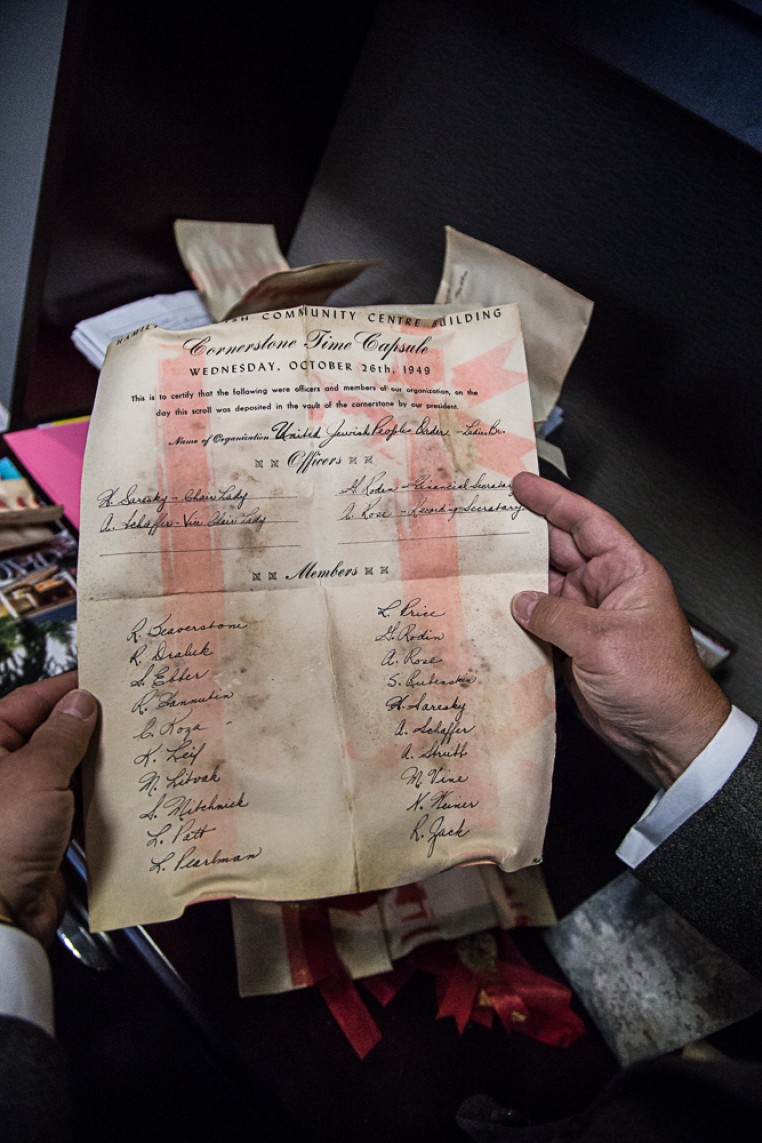 COMMUNITY CENTRE BUILDING
Cornerstone Time Capsule
WEDNESDAY, OCTOBER 26th, 1949
This is to certify that the following were officers and members of our organization, on the
day this scroll was deposited in the vault of the cornerstone by our president.
Name of Organization United Jewish Peoples Order -
Officers
H. Saresky - Chair Lady
A. Schaffer - Vice Chair Lady
G. Rodin - Financial Secretary
A. Rose - Recording Secretary.
Members
R. Beaverstone
R. Drabek
S. Elber
R.
C. Koza
K. Leif
M. Litvak
S. Mitchnick
L. Patt
L. Pearlman
L. Price
G. Rodin
A. Rose
S. Rubenstein
H. Saresky
A. Schaffer
A.
M. Vine
N. Weiner
R. Jack